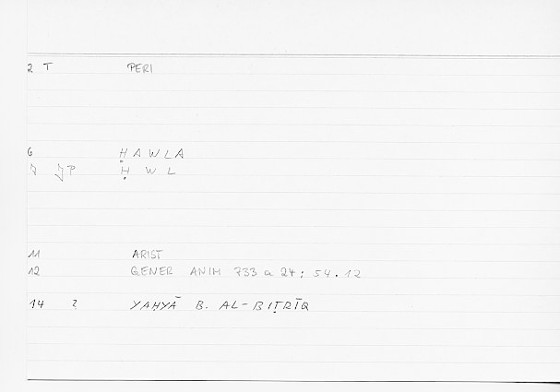 2 T PERI
6 ḤAWLA
P ḤWL
11 ARIST
12 GENER ANIM 733 a 24: 54.12
14 ? YAḤYĀ B. AL-BIṬRĪQ